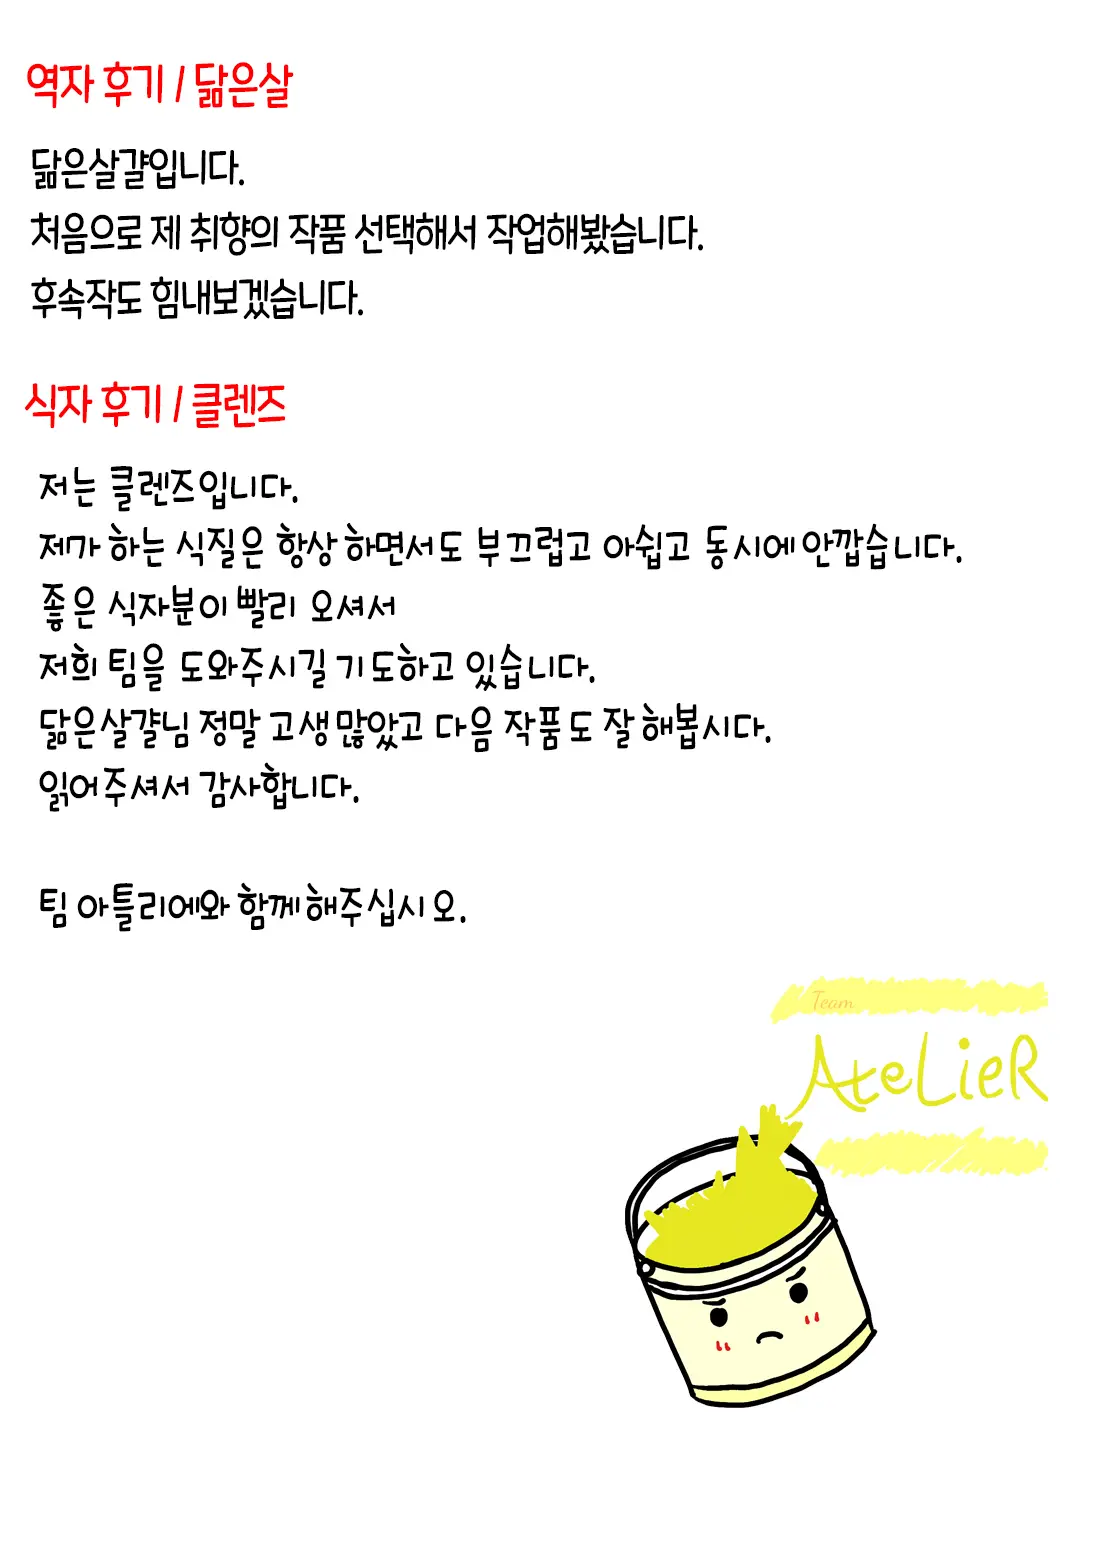 역자 후기 / 닮은살
닮은살걀입니다.
처음으로 제 취향의 작품 선택해서 작업해봤습니다.
후속작도 힘내보겠습니다.
식자 후기 / 클렌즈
저는 클렌즈입니다.
제가 하는 식질은 항상 하면서도 부끄럽고 아쉽고 동시에 안깝습니다.
좋은 식자분이 빨리 오셔서
저희 팀을 도와주시길 기도하고 있습니다.
닮은살걀님 정말 고생 많았고 다음 작품도 잘 해봅시다.
읽어주셔서 감사합니다.
팀 아틀리에와 함께 해주십시오.
Team
AteLieR